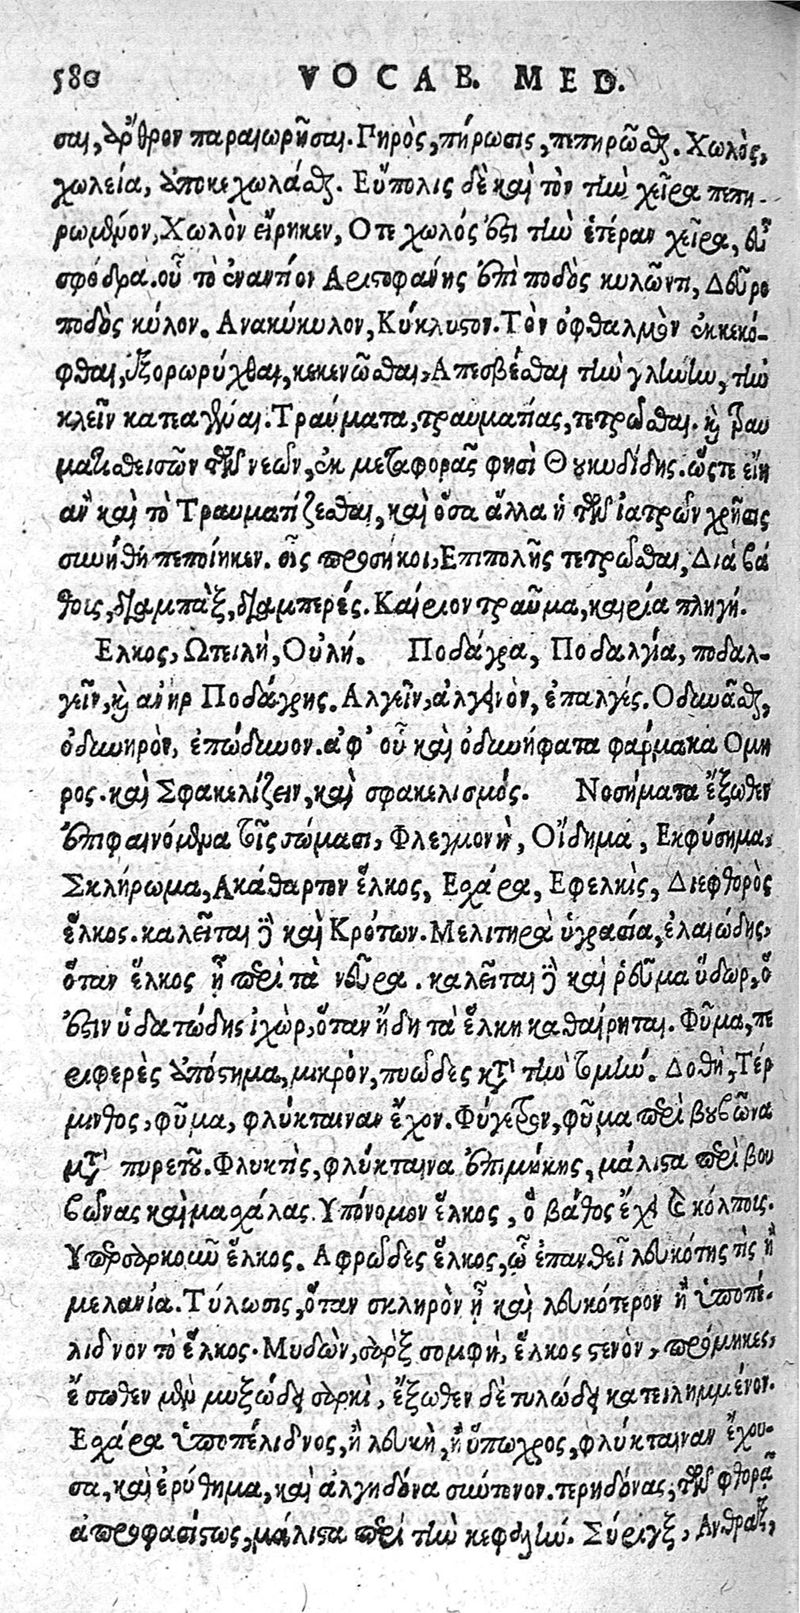 580 VOCAB. MED.
σαι, ἄρθρον παραιωρῆσαι. Πηρὸς, πήρωσις, πεπηρῶσθαι. Χωλὸς,
χωλεία, ἀποκεχωλάσθαι. Εὔπολις δὲ καὶ τὸν τὴν χεῖρα πεπη-
ρωμένον, Χωλὸν εἴρηκεν, Οτε χωλός ἐστι τὴν ἑτέραν χεῖρα, εὖ
σφόδρα. οὗ τὸ ἐναντίον Αριστοφάνης ἐπὶ ποδὸς κυλῶντι, Δεῦρο
ποδὸς κύλον. Ανακύκυλον, Κύκλυστον. Τὸν ὀφθαλμὸν ἐκκεκό-
φθαι, ἐξορωρύχθαι, κεκενῶσθαι, Απεσβέσθαι τὴν γλήνην, τὴν
κλεῖν κατεαγέναι. Τραύματα, τραυματίας, τετρῶσθαι. καὶ τραυ
ματισθεισῶν τῶν νεῶν, ἐκ μεταφορᾶς φησὶ Θουκυδίδης. ὥστε εἴη
αὖ καὶ τὸ Τραυματίζεσθαι, καὶ ὅσα ἄλλα ἡ τῶν ἰατρῶν χρῆσις
συνήθη πεποίηκεν. οἷς προσήκοι, Επιπολῆς τετρῶσθαι, Διὰ βά
θοις, διαμπὰξ, διαμπερές. Καίριον τραῦμα, καιρία πληγή.
Ελκος, Ωτειλή, Οὐλή. Ποδάγρα, Ποδαλγία, ποδαλ-
γεῖν, καὶ ἀνὴρ Ποδάγρης. Αλγεῖν, ἀλγεινὸν, ἐπαλγές. Οδυνᾶσθαι,
ὀδυνηρὸν, ἐπώδυνον. ἀφ' οὗ καὶ ὀδυνήφατα φάρμακα Ομη
ρος. καὶ Σφακελίζειν, καὶ σφακελισμός. Νοσήματα ἔξωθεν
ἐπιφαινόμενα τοῖς σώμασι, Φλεγμονὴ, Οἴδημα, Εκφύσημα,
Σκλήρωμα, Ακάθαρτον ἕλκος, Εσχάρα, Εφελκὶς, Διεφθορὸς
ἕλκος. καλεῖται δὲ καὶ Κρότων. Μελιτηρὰ ὑγρασία, ἐλαιώδης,
ὅταν ἕλκος ᾖ περὶ τὰ νεῦρα. καλεῖται δὲ καὶ ῥεῦμα ὕδωρ, ὅ
ἐστιν ὑδατώδης ἰχὼρ, ὅταν ἤδη τὰ ἕλκη καθαίρηται. Φῦμα, πε
ριφερὲς ἀπόστημα, μικρὸν, πυῶδες κατὰ τὴν τομήν. Δοθὴ, Τέρ
μινθος, φῦμα, φλύκταιναν ἔχον. Φύγεθρον, φῦμα περὶ βουβῶνα
μετὰ πυρετοῦ. Φλυκτὶς, φλύκταινα ἐπιμήκης, μάλιστα περὶ βου
βῶνας καὶ μασχάλας. Υπόνομον ἕλκος, ὃ βάθος ἔχει ἐν κόλποις.
Υπερσαρκοῦν ἕλκος. Αφρῶδες ἕλκος, ᾧ ἐπανθεῖ λευκότης τὶς ἢ
μελανία. Τύλωσις, ὅταν σκληρὸν ᾖ καὶ λευκότερον ἢ ὑποπέ-
λιδνον τὸ ἕλκος. Μυδῶν, σὰρξ σομφὴ, ἕλκος στενὸν, πρόμηκες,
ἔσωθεν μὲν μυξώδει σαρκὶ, ἔξωθεν δὲ τυλώδει κατειλημμένον.
Εσχάρα ὑποπέλιδνος, ἢ λευκὴ, ἢ ὕπωχρος, φλύκταιναν ἔχου-
σα, καὶ ἐρύθημα, καὶ ἀλγηδόνα σύντονον. τερηδόνας, τῶν φθορᾷ
ἀπροφασίστως, μάλιστα περὶ τὴν κεφαλήν. Σύριγξ, Ανθραξ,